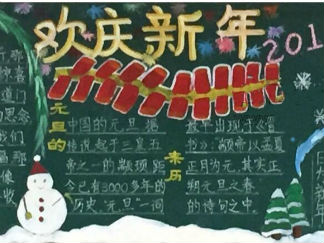 欢庆新年
201
元旦的
来历
中国的元旦,据
传说起于三皇五
帝之一的颛顼,距
今已有3000多年的
历史。"元旦"一词
最早出现于《晋
书》:“颛帝以孟夏
正月为元,其实正
朔元旦之春”
的诗句之中。
惊喜
道门
思念
我们
那
像
收